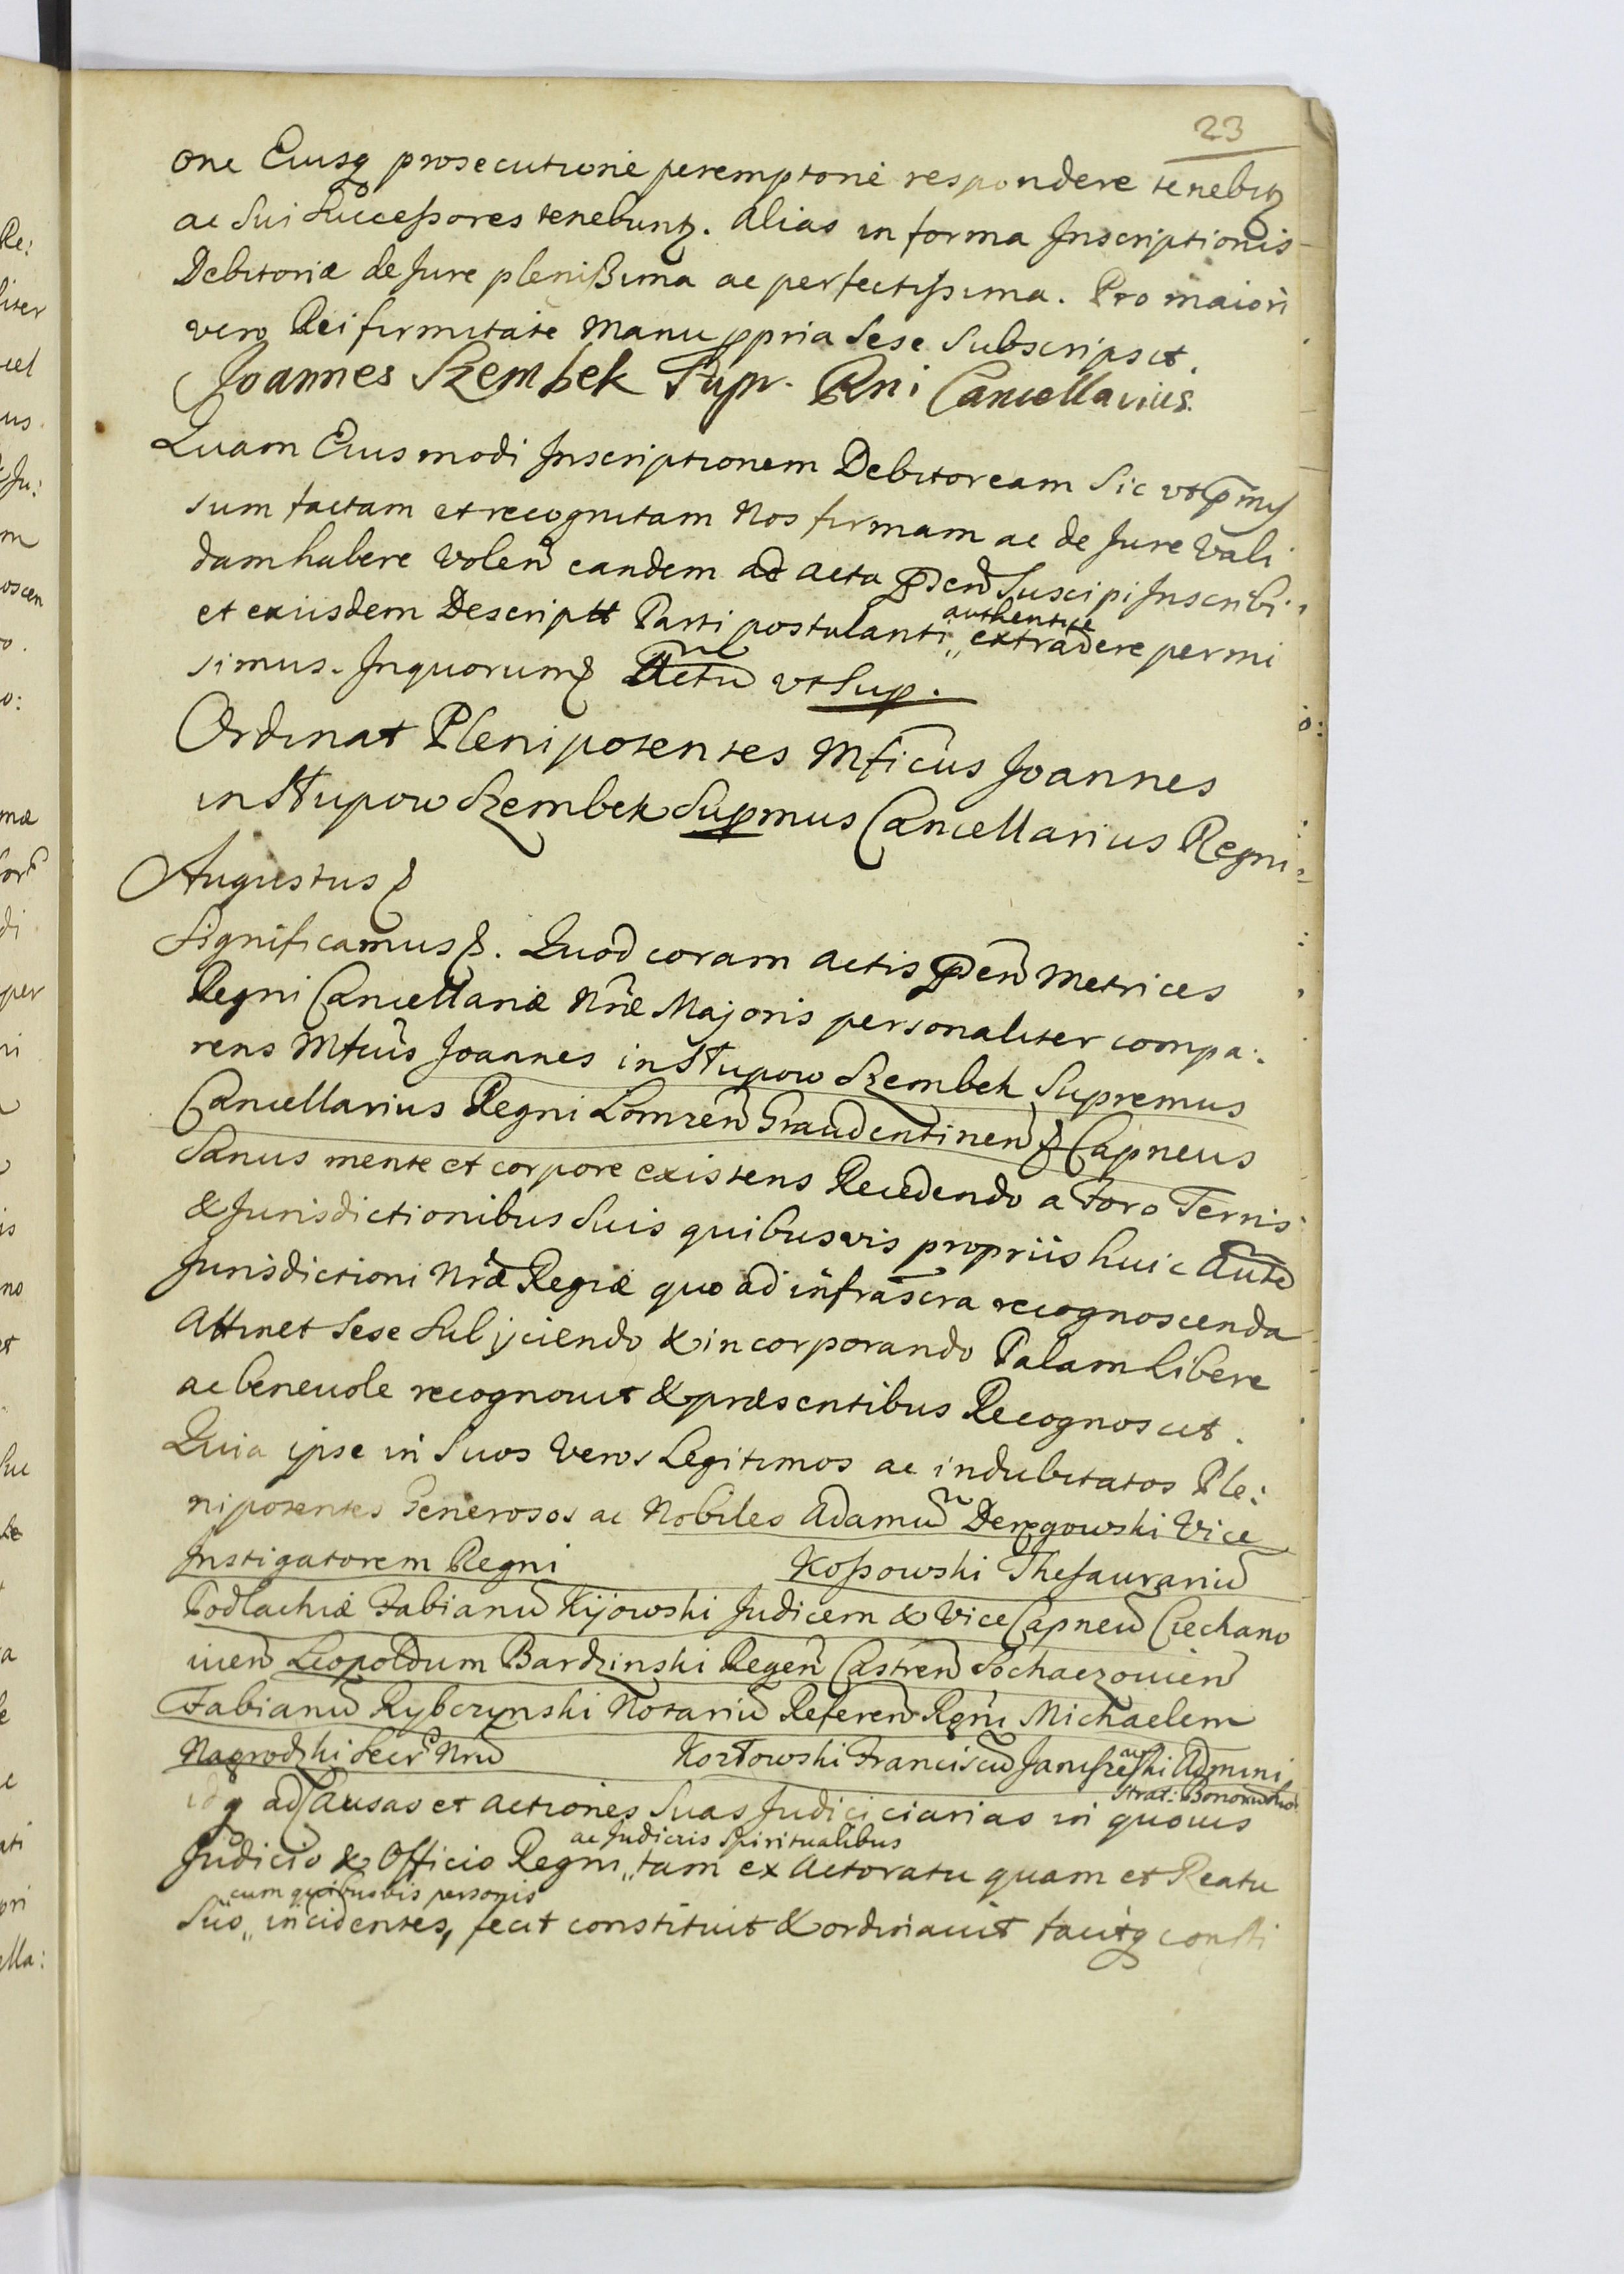 23
one Eiusq prosecutione peremptorie respondere tenebitz
ac Sui Successores tenebuntz. Alias in forma Inscriptionis
Debitoriæ de Jure plenißima ac perfectißima. Pro maiori
vero Rei firmitate Manu ppria Sese Subscripsit.
Joannes Szembek Supr. Rni Cancellarius.
Quam Eiusmodi Inscriptionem Debitoream Sic vt
sum factam et recognitam Nos firmam ac de Jure Vali
dam habere Volen eandem ad acta pden Suscipi Inscribi
et exiisdem Descriptt Parti postulanti authentice extradere permi
simus. Inquorum Actu vt Sup.
Ordinat Plenipotentes Mficus Joannes
in Słupow Szembek Supmus Cancellarius Regni
Augustus
Significamus. Quod coram actis pden Metrices
Regni Cancellariæ Nræ Majoris personaliter compa:
rens Mfcus Joannes in Słupow Szembek Supremus
Cancellarius Regni Lomzen Graudentinen & Capneus
Sanus mente et corpore existens Recedendo a Foro Terris
& Jurisdictionibus Suis quibusvis propriis huic aute
Jurisdictioni Nræ Regiæ quo ad infrascra recognoscenda
Attinet Sese Subijciendo & incorporando Palam Libere
ac beneuole recognouit & præsentibus Recognoscit.
Quia ipse in Suos Veros Legitimos ac indubitatos Ple:
nipotentes Generosos ac Nobiles Adamu Deręgowski Vice
Instigatorem Regni Koßowski Thesaurariu
Podlachiæ Fabianu Kijowski Judicem & Vice Capneu Ciechano
uien Leopoldum Bardzinski Regen Castren Sochaczouien
Fabianu Rybczynski Notariu Referen Rgni Michaelem
Nagrodzki Secr Nru Kozłowski Franciscu Admini
strat:
idq ad Causas et actiones Suas Judiciciarias in quouis
Judicio & Officio Regni ac Judiciis Spiritualibus tam ex Actoratu quam et Reatu
Suo cum quibusvis personis incidentes, fecit constituit & ordinauit facitq consti